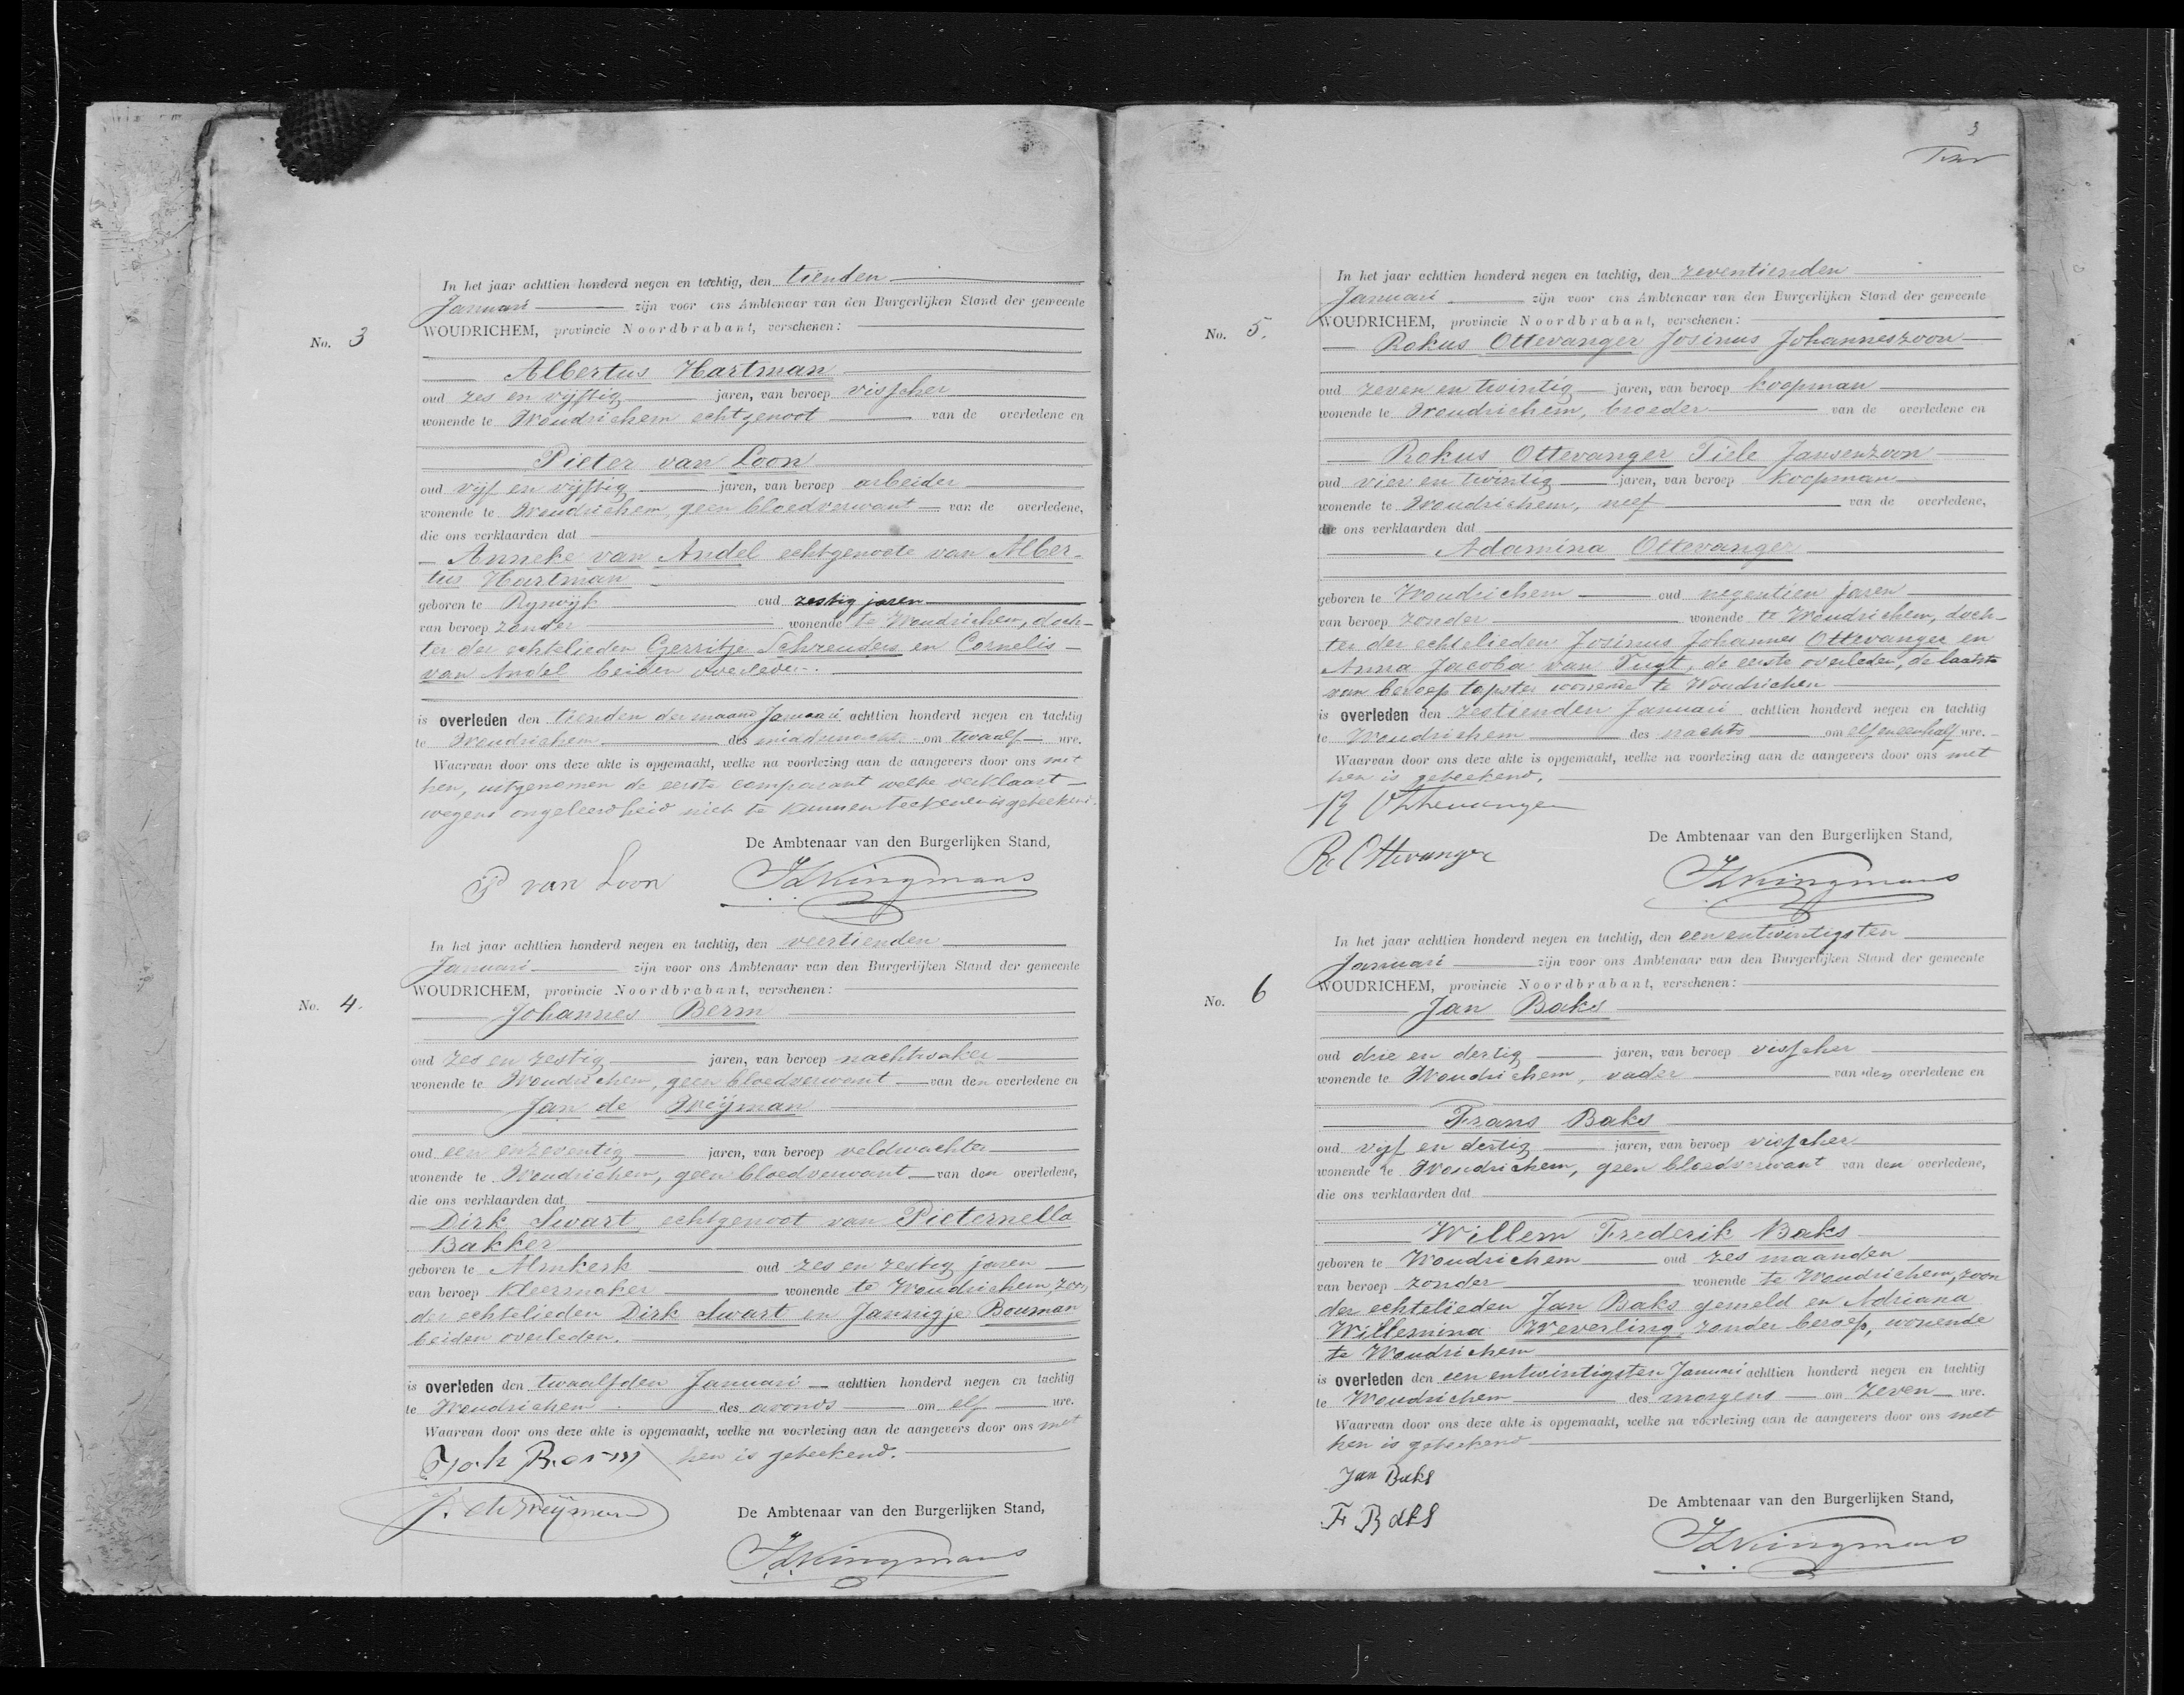 In het jaar achttien honderd negen en tachtig, den tienden
Januari zijn voor ons Ambtenaar van den Burgerlijken Stand der gemeente
WOUDRICHEM, provincie Noordbrabant, verschenen:
No. 3
Albertus Hartman
oud zes en vijftig jaren, van beroep visscher
wonende te Woudrichem echtgenoot van de overledene en
Pieter van Loon
oud vijf en vijftig jaren, van beroep arbeider
wonende te Woudrichem, geen bloedverwant van de overledene,
die ons verklaarden dat
Anneke van Andel echtgenoote van Alber-
tus Hartman
geboren te Rijswijk oud zestig jaren
van beroep zonder wonende te Woudrichem, doch-
ter der echtelieden Gerritje Schreuders en Cornelis
van Andel beiden overleden.
is overleden den tienden der maand Januari achttien honderd negen en tachtig
te Woudrichem des middernachts om twaalf ure.
Waarvan door ons deze akte is opgemaakt, welke na voorlezing aan de aangevers door ons met
hen, uitgenomen de eerste comparant welke verklaart
wegens ongeleerdheid niet te kunnen teekenen is geteekend.
De Ambtenaar van den Burgerlijken Stand,
P van Loon Kingmans
In het jaar achttien honderd negen en tachtig, den veertienden
Januari zijn voor ons Ambtenaar van den Burgerlijken Stand der gemeente
WOUDRICHEM, provincie Noordbrabant, verschenen:
No. 4.
Johannes Berm
oud zes en zestig jaren, van beroep nachtwaker
wonende te Woudrichem, geen bloedverwant van den overledene en
Jan de Weijman
oud een en zeventig jaren, van beroep veldwachter
wonende te Woudrichem, geen bloedverwant van den overledene,
die ons verklaarden dat
Dirk Swart, echtgenoot van Pieternella
Bakker
geboren te Almkerk oud zes en zestig jaren
van beroep kleermaker wonende te Woudrichem, zoon
der echtelieden Dirk Swart en Jannigje Bouman
beiden overleden.
is overleden den twaalfden Januari achttien honderd negen en tachtig
te Woudrichem des avonds om elf ure.
Waarvan door ons deze akte is opgemaakt, welke na voorlezing aan de aangevers door ons met
hen is geteekend.
Joh Berm
J. de Weijman
De Ambtenaar van den Burgerlijken Stand,
Kingmans
3
In het jaar achttien honderd negen en tachtig, den zeventienden
Januari zijn voor ons Ambtenaar van den Burgerlijken Stand der gemeente
WOUDRICHEM, provincie Noordbrabant, verschenen:
No. 5.
Rokus Ottevanger Josinus Johanneszoon
oud zeven en twintig jaren, van beroep koopman
wonende te Woudrichem, broeder van de overledene en
Rokus Ottevanger Tiele Jansenzoon
oud vier en twintig jaren, van beroep koopman
wonende te Woudrichem, neef van de overledene,
die ons verklaarden dat
Adamina Ottevanger
geboren te Woudrichem oud negentien jaren
van beroep zonder wonende te Woudrichem, doch-
ter der echtelieden Josinus Johannes Ottevanger en
Anna Jacoba van Tugt, de eerste overleden, de laatste
van beroep tapster wonende te Woudrichem
is overleden den zestienden Januari achttien honderd negen en tachtig
te Woudrichem des nachts om elf en een half ure.
Waarvan door ons deze akte is opgemaakt, welke na voorlezing aan de aangevers door ons met
hen is geteekend.
R Ottevanger
De Ambtenaar van den Burgerlijken Stand,
R. Ottevanger
Kingmans
In het jaar achttien honderd negen en tachtig, den een entwintigsten
Januari zijn voor ons Ambtenaar van den Burgerlijken Stand der gemeente
WOUDRICHEM, provincie Noordbrabant, verschenen:
No. 6
Jan Baks
oud drie en dertig jaren, van beroep visscher
wonende te Woudrichem, vader van den overledene en
Frans Baks
oud vijf en dertig jaren, van beroep visscher
wonende te Woudrichem, geen bloedverwant van den overledene,
die ons verklaarden dat
Willem Frederik Baks
geboren te Woudrichem oud zes maanden
van beroep zonder wonende te Woudrichem, zoon
der echtelieden Jan Baks gemeld en Adriana
Willemina Weverling zonder beroep, wonende
te Woudrichem
is overleden den een entwintigsten Januari achttien honderd negen en tachtig
te Woudrichem des morgens om zeven ure.
Waarvan door ons deze akte is opgemaakt, welke na voorlezing aan de aangevers door ons met
hen is geteekend
Jan Baks
F Baks
De Ambtenaar van den Burgerlijken Stand,
Kingmans